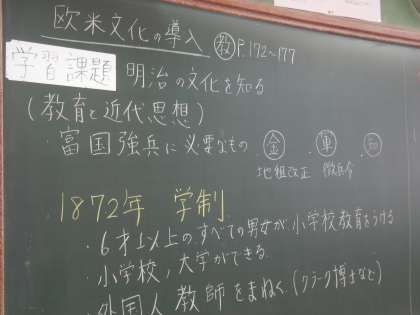 欧米文化の導入 教 P.172〜177
学習課題 明治の文化を知る
(教育と近代思想)
・富国強兵に必要なもの ・金 ・軍 ・知
地租改正 徴兵令
1872年 学制
・6才以上のすべての男女が小学校教育をうける
・小学校,大学ができる
・外国人教師をまねく(クラーク博士など)